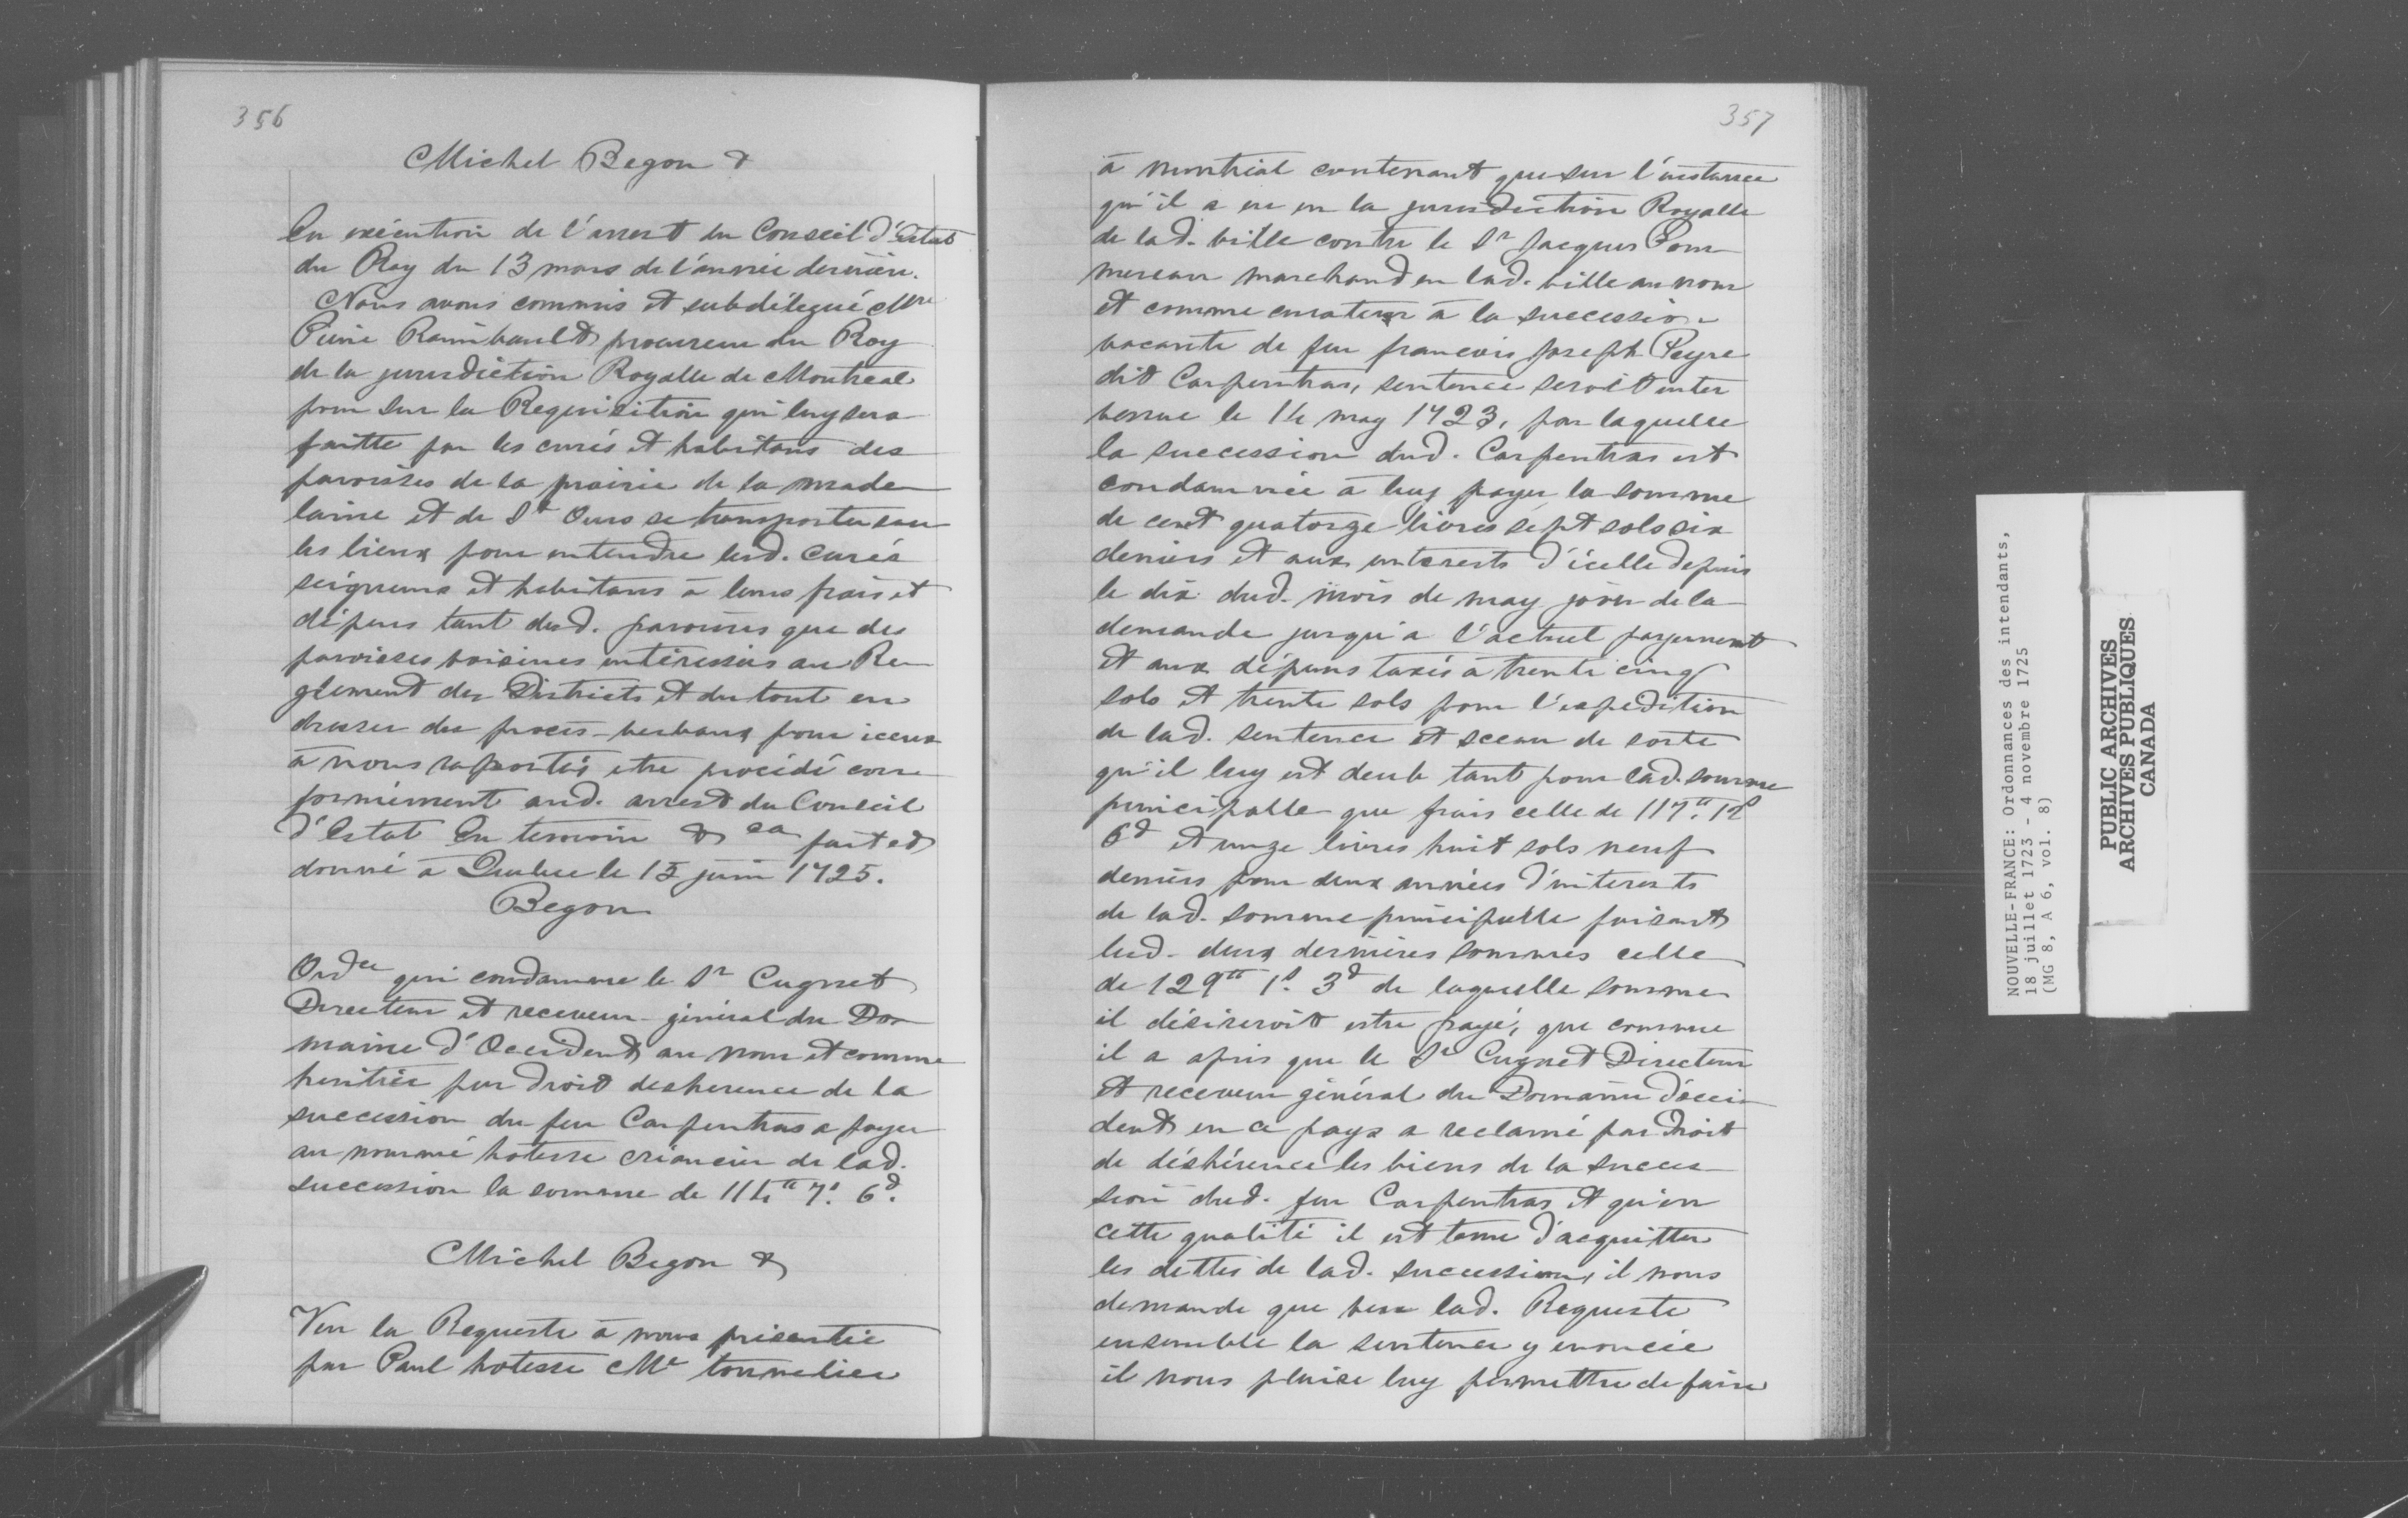 356
Michel Begon &
En exécution de l'arrest du Conseil d'Estat
du Roy du 13 mars de l'année dernière.
Nous avons commis et subdélégué Mre
Pierre Raimbault procureur du Roy
de la jurisdiction Royalle de Montreal
pour sur la Requisition qui luy sera
faitte par les curés et habitans des
paroisses de la prairie de la made
laine et de St Ours se transporter sur
les lieux pour entendre lesd. curés
seigneurs et habitans à leurs frais et
dépens tant desd. paroisses que des
paroisses voisines intéressées au Re
glement des Districts et du tout en
dresser des procès-verbaux pour iceux
à nous raportés etre procédé con
formément aud. arrest du Conseil
d'Estat En temoin & ca fait et
donné à Quebec le 15 juin 1725.
Begon
Ordce qui condamne le Sr Cugnet
Directeur et receveur général du Do
maine d'Occident au nom et comme
heritier par droit desherence de la
succession du feu Carpentras a payer
au nommé hotesse créancier de lad.
succession la somme de 114tt 7s. 6d.
Michel Begon &
Veu la Requeste à nous présentée
par Paul hotesse Me tonnelier
357
à montréal contenant que sur l'instance
qu'il a eue en la jurisdiction Royalle
de lad. ville contre le Sr Jacques Pom
mereau marchand en lad. ville au nom
et comme curateur à la succession
vacante de feu francois Joseph Peyre
dit Carpentras, sentence seroit inter
venue le 14 may 1723, par laquelle
la succession dud. Carpentras est
condamnée à luy payer la somme
de cent quatorze livres sept sols six
deniers et aux interests d'icelle depuis
le dix dud. mois de may jour de la
demande jusqu'a l'actuel payement
et aux dépens taxés à trente cinq
sols et trente sols pour l'expedition
de lad. sentence et sceau de sorte
qu'il luy est deub tant pour lad. somme
principalle que frais celle de 117tt. 12s
6d et unze livres huit sols neuf
deniers pour deux années d'interests
de lad. somme principalle faisant
lesd. deux dernières sommes celle
de 129tt 1s. 3d de laquelle somme
il désireroit estre payé, que comme
il a apris que le Sr Cugnet Directeur
et receveur général du Domaine d'occi
dent en ce pays a reclamé par droit
de déshérence les biens de la succes
sion dud. feu Carpentras et qu'en
cette qualité il est tenu d'acquitter
les dettes de lad. succession, il nous
demande que veu lad. Requeste
ensemble la sentence y enoncée
il nous plaise luy permettre de faire
NOUVELLE-FRANCE: Ordonnances des intendants,
18 juillet 1723 - 4 novembre 1725
(MG 8, A 6, vol. 8)
PUBLIC ARCHIVES
ARCHIVES PUBLIQUES
CANADA